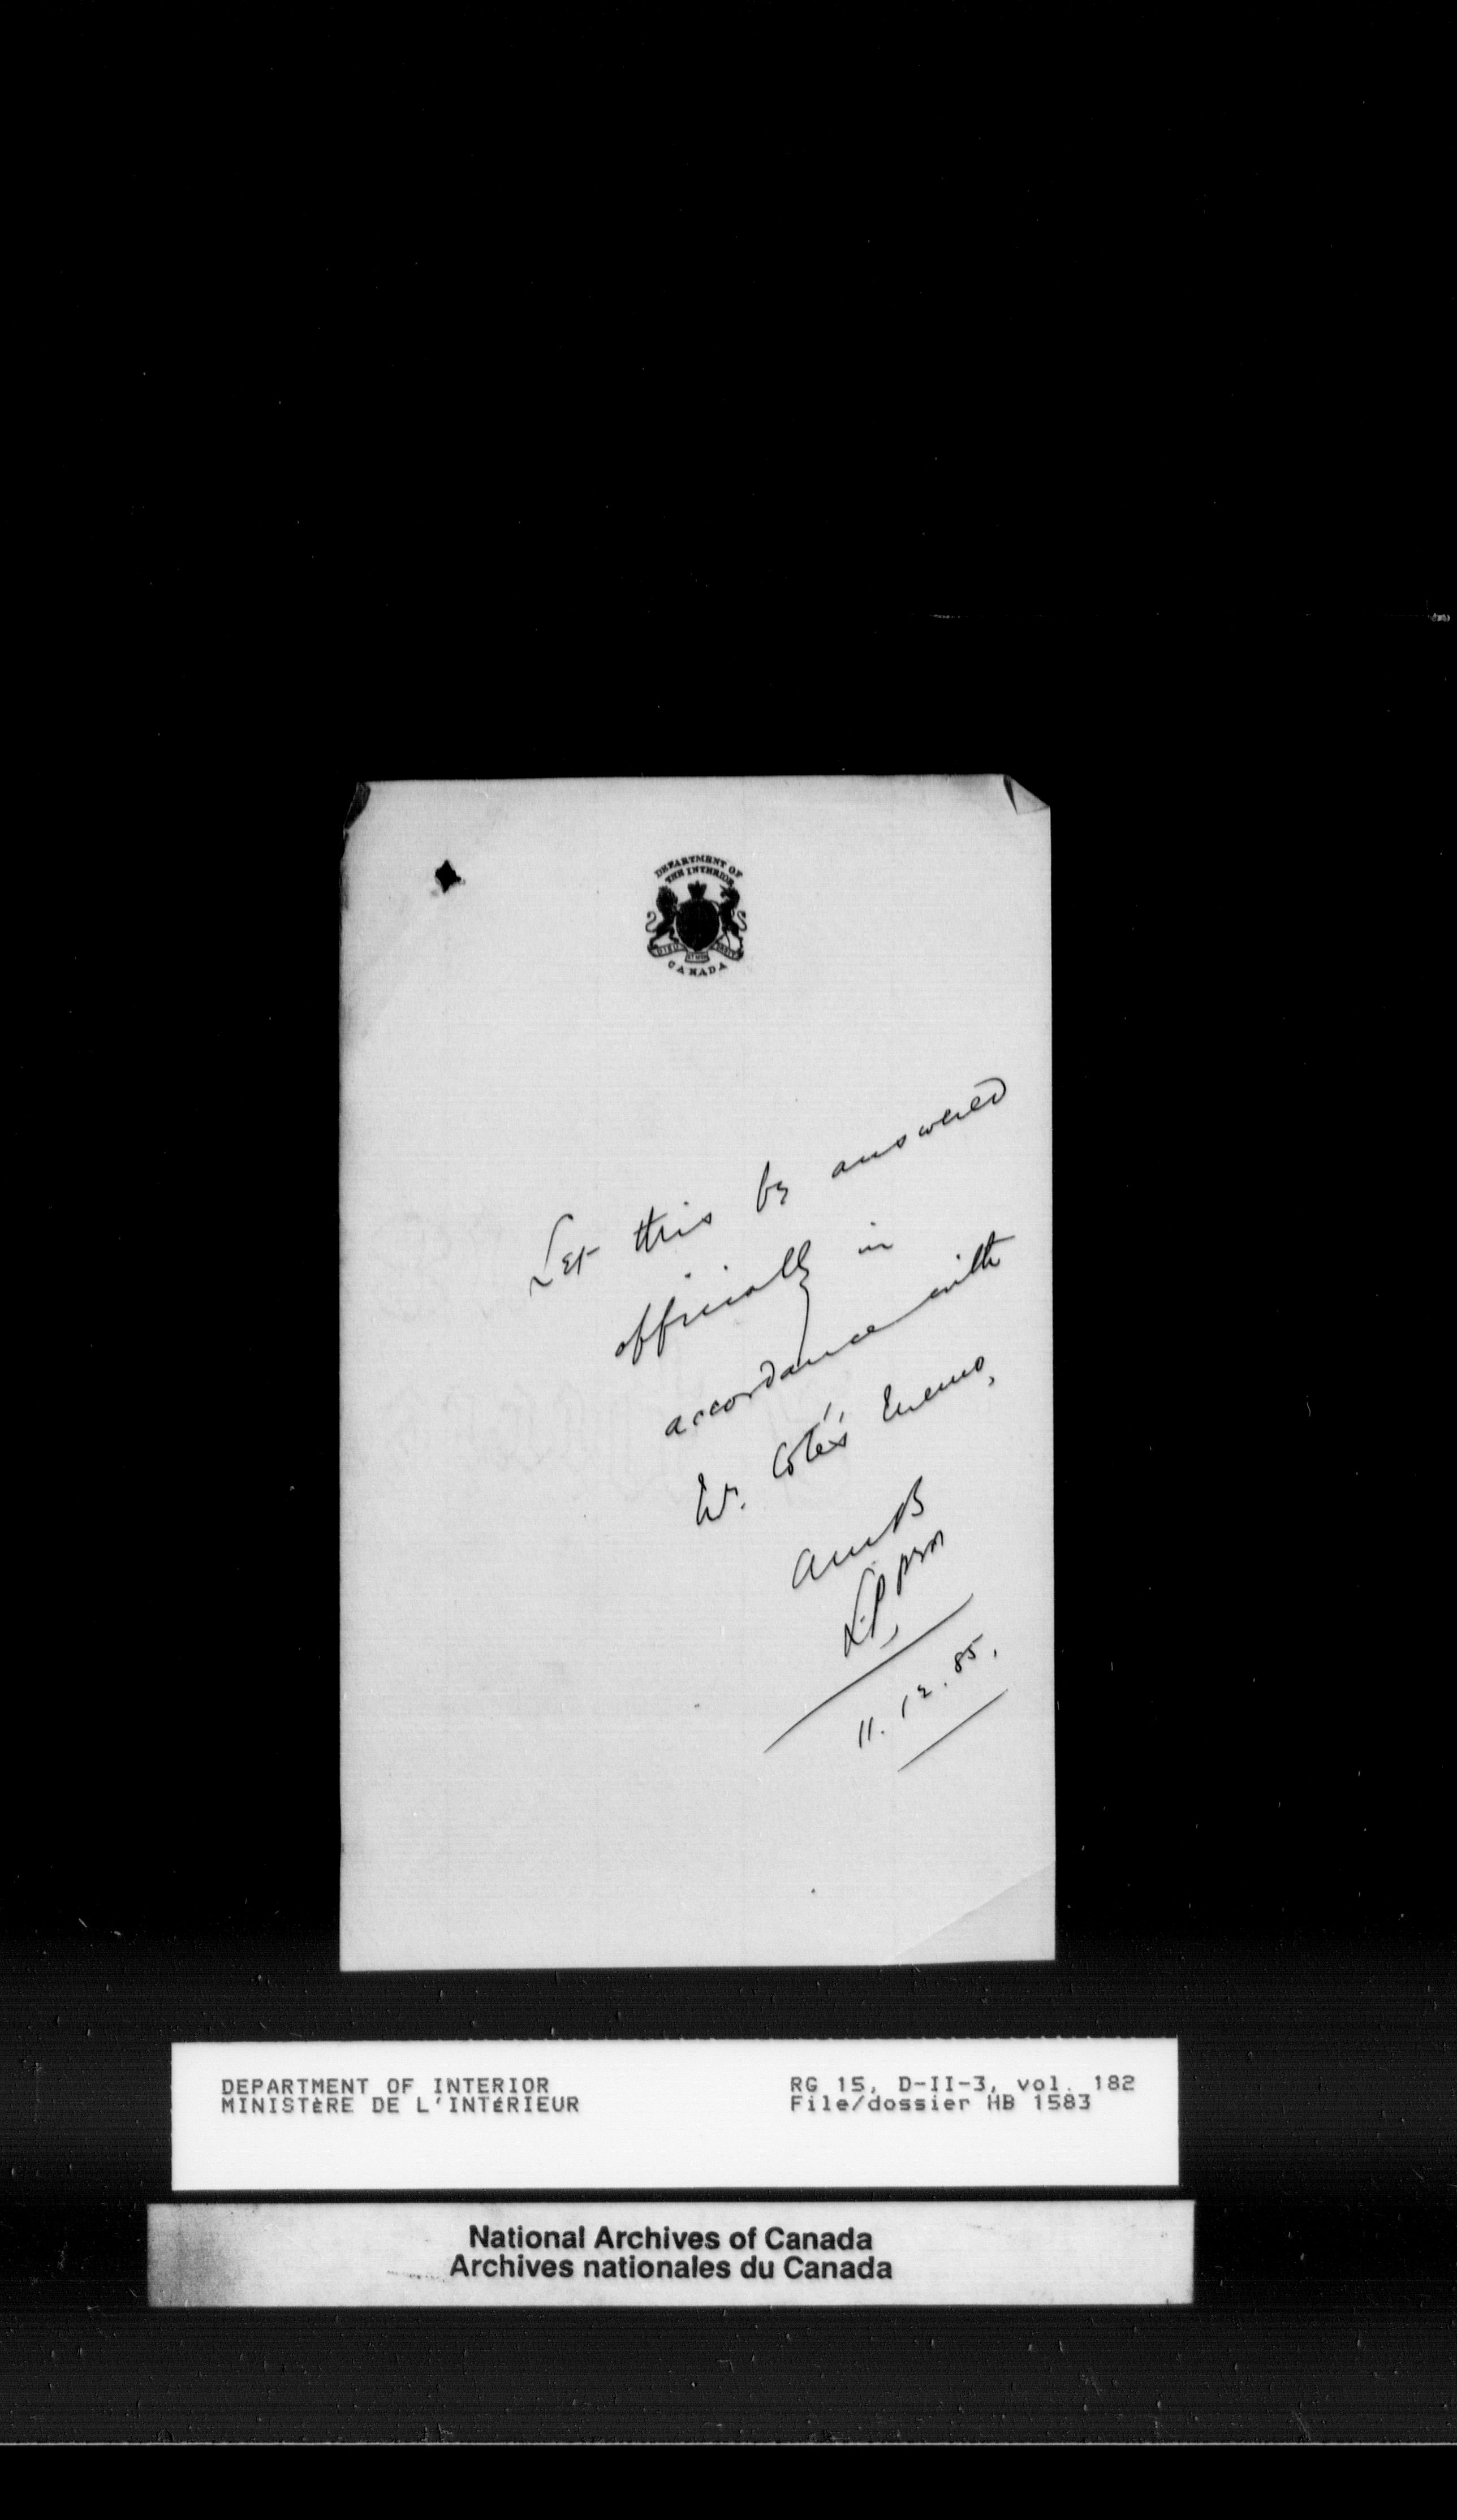 DEPARTMENT OF
THE INTERIOR
DIEU ET MON DROIT
CANADA
Let this be answered
officially in
accordance with
Mr. Coté's memo,
AMB
11.12.85.
DEPARTMENT OF INTERIOR
MINISTÈRE DE L'INTÉRIEUR
RG 15, D-II-3, vol. 182
File/dossier HB 1583
National Archives of Canada
Archives nationales du Canada